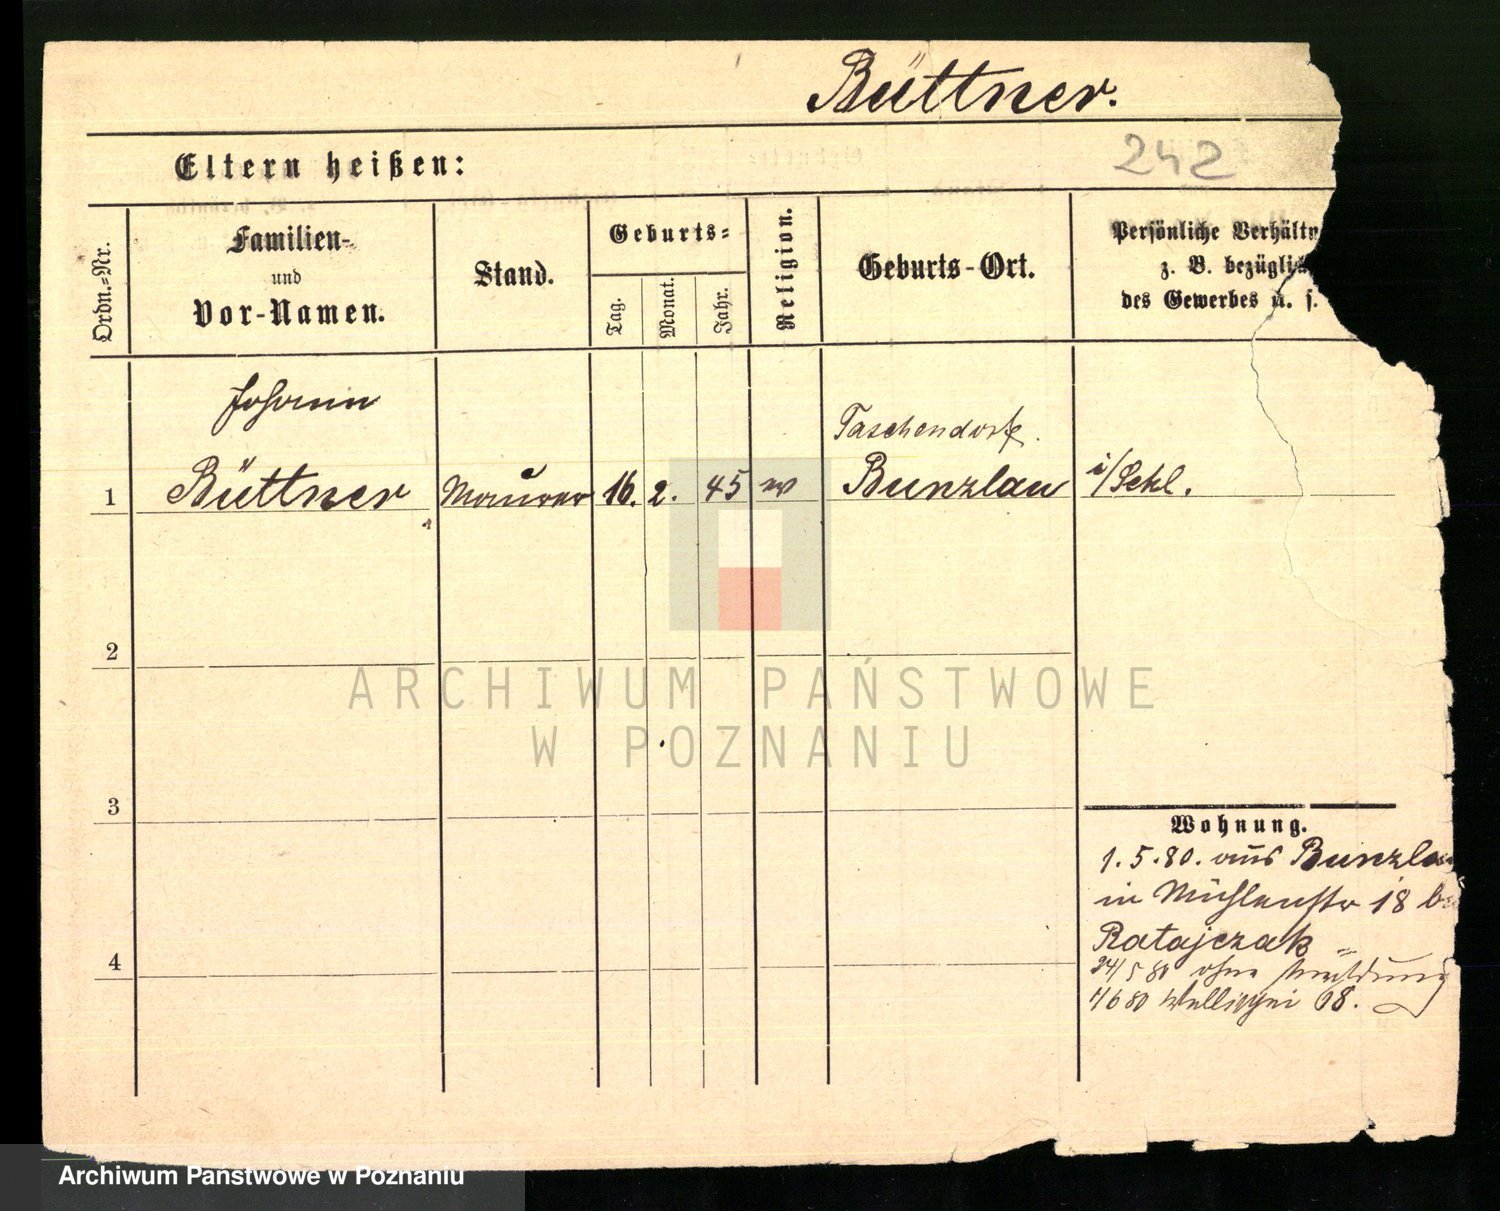 Büttner.
242
Eltern heißen:
Ordn.-Nr.
Familien-
und
Vor-Namen.
Stand.
Geburts-
Tag.
Monat.
Jahr.
Religion.
Geburts-Ort.
Persönliche Verhältn
z. B. bezügli
des Gewerbes u. s.
Johann
Taschendorf.
1 Büttner Maurer 16. 2. 45 Bunzlau i/Schl.
2
ARCHIWUM PAŃSTWOWE
W POZNANIU
3
Wohnung.
1.5.80. aus Bunzlau
in Mühlenstr 18 bei
Ratajczak
4
24/5 80 ohne Meldung
1/6 80 18.
Archiwum Państwowe w Poznaniu